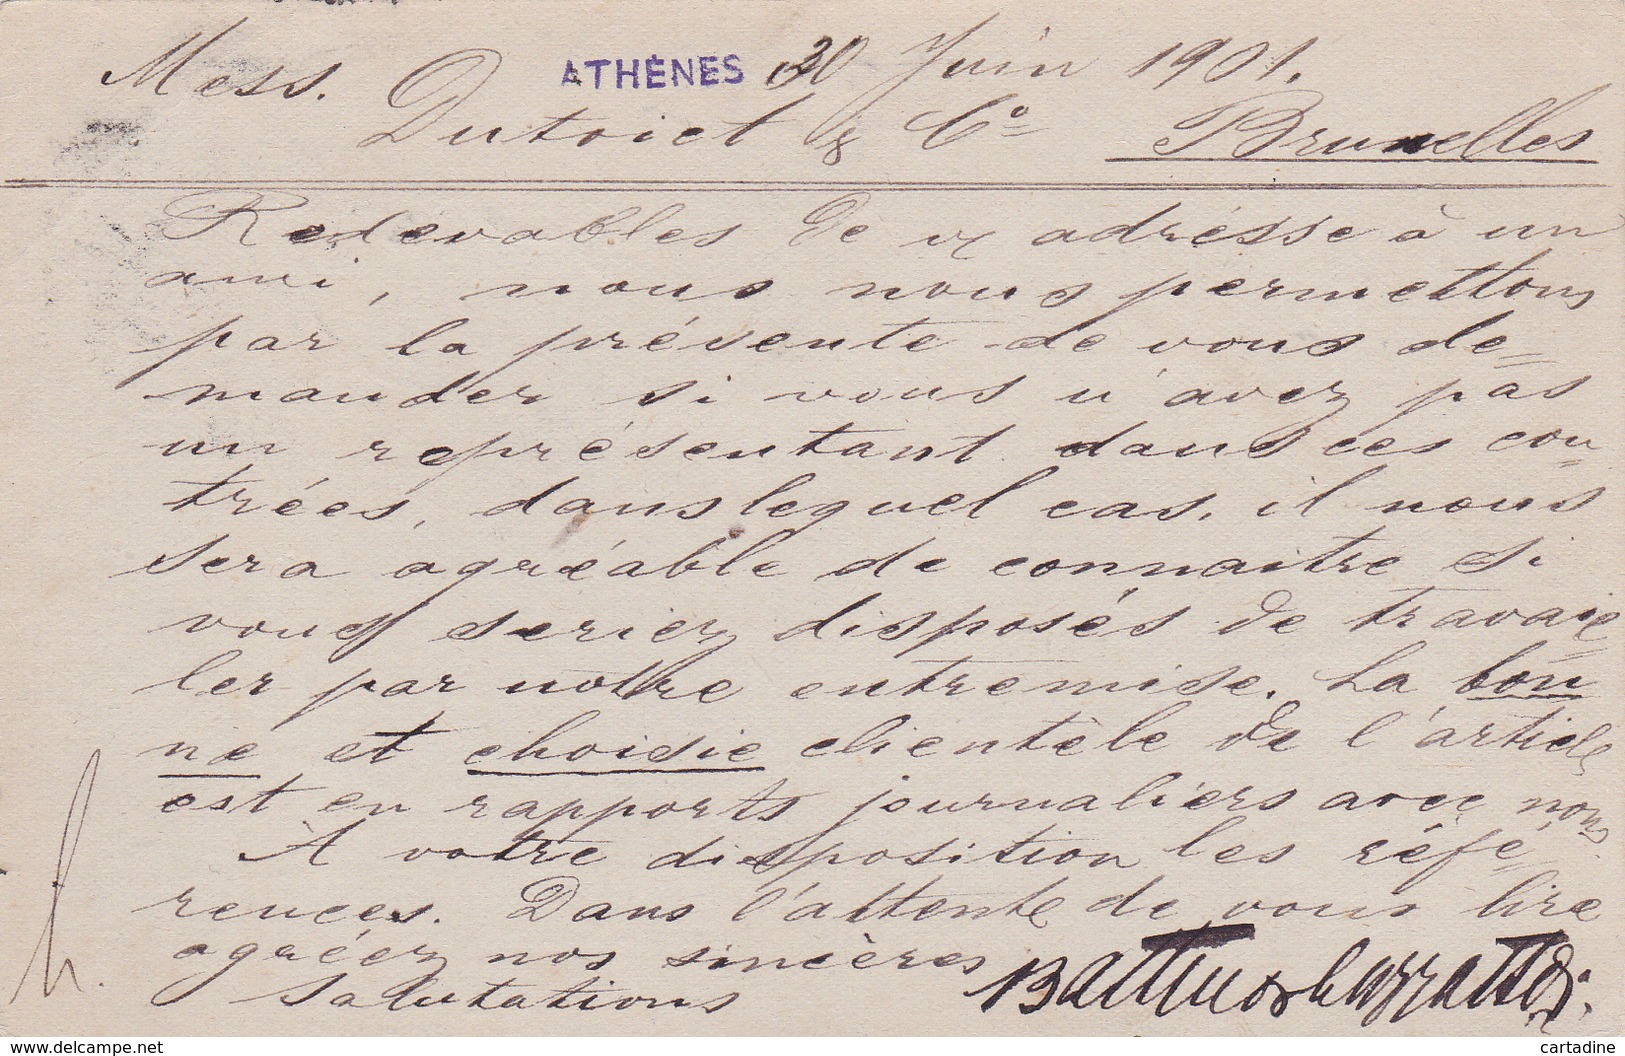 ATHÈNES 30 Juin 1901.
Mess. Dutoict & Co Bruxelles
Redévables de v/ adrésse à un
ami, nous nous permettons
par la présente de vous de=
mander si vous n'avez pas
un représentant dans ces con
trées, dans lequel cas, il nous
sera agréable de connaitre si
vous seriez disposés de travail
ler par notre entremise. La bon
ne et choisie clientèle de l'article
est en rapports journaliers avec nous.
À votre disposition les réfé=
rences. Dans l'attente de vous lire
agréez nos sincères
salutations
www.delcampe.net
cartadine